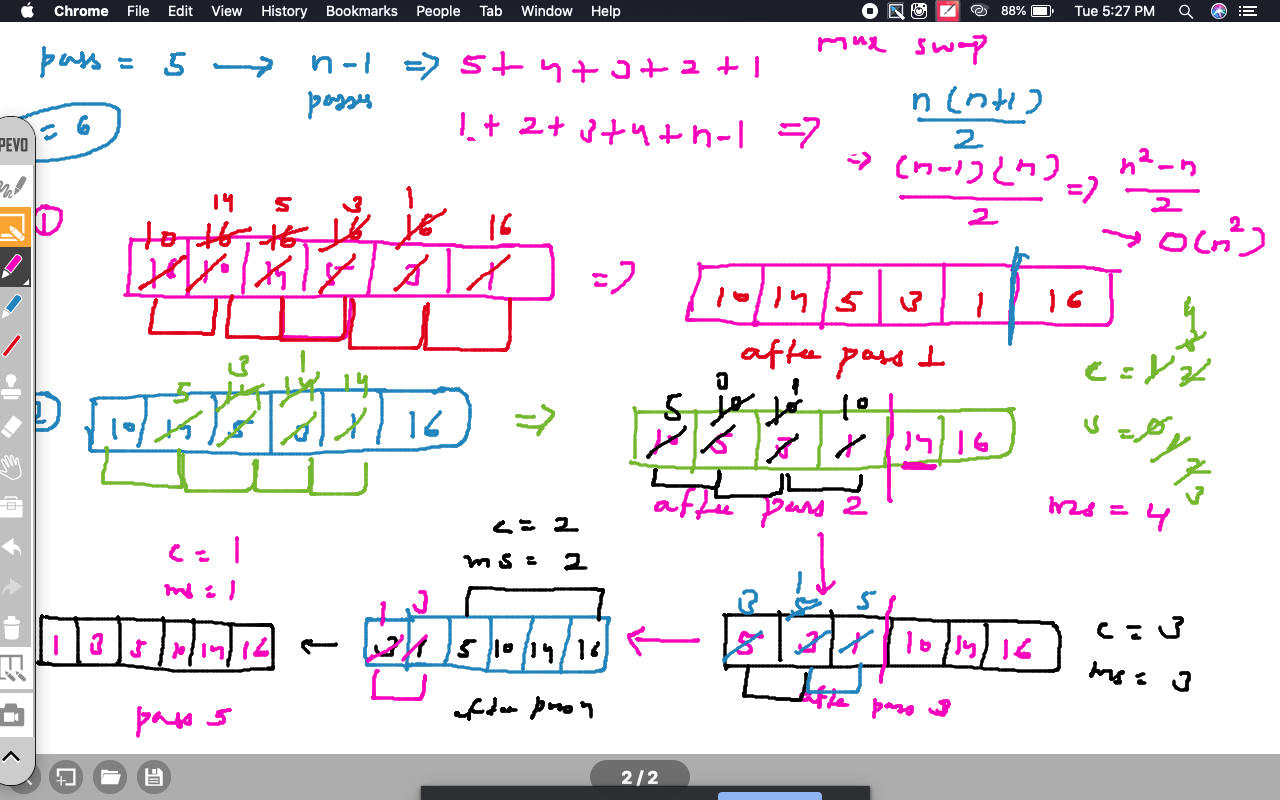 Chrome File Edit View History Bookmarks People Tab Window Help 88% Tue 5:27 PM
max swap
pass = 5 → n-1 => 5+4+3+2+1
passes
n(n+1)
2
= 6
1 + 2 + 3 + 4 + n-1 =>
=> (n-1)(n) => n² - n
2 2
→ O(n²)
EPEVO
1
14 5 3 1
10 16 16 16 16 16
16 10 14 5 3 1 => 10 14 5 3 1 16
after pass 1
3 1
5 14 14 14
2 10 14 5 3 1 16 =>
3 1
5 10 10 10
10 5 3 1 14 16
after pass 2
4
3
c = 1 2
s = 0 1
2
3
ms = 4
c = 2
ms = 2
c = 1
ms = 1
1 3
3 1 5 10 14 16
after pass 4
1 3 5 10 14 16
pass 5
1
3 5 5
5 3 1 10 14 16
after pass 3
c = 3
ms = 3
2 / 2